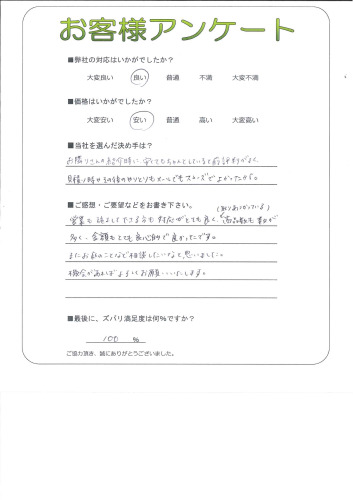 お客様アンケート
■弊社の対応はいかがでしたか?
大変良い 良い 普通 不満 大変不満
■価格はいかがでしたか?
大変安い 安い 普通 高い 大変高い
■当社を選んだ決め手は?
お隣りさんの紹介時に、安くてもちゃんとしていると前評判がよく、
見積り時からその後のやりとりもメールでもスムーズでよかったから。
■ご感想・ご要望などをお書き下さい。
営業も してできる方も対応がとても良く、商品数も
多く、金額もとても良心的で良かったです。
またお庭のことなど相談したいなと思いました。
機会があればよろしくお願いいたします。
■最後に、ズバリ満足度は何%ですか?
100 %
ご協力頂き、誠にありがとうございました。